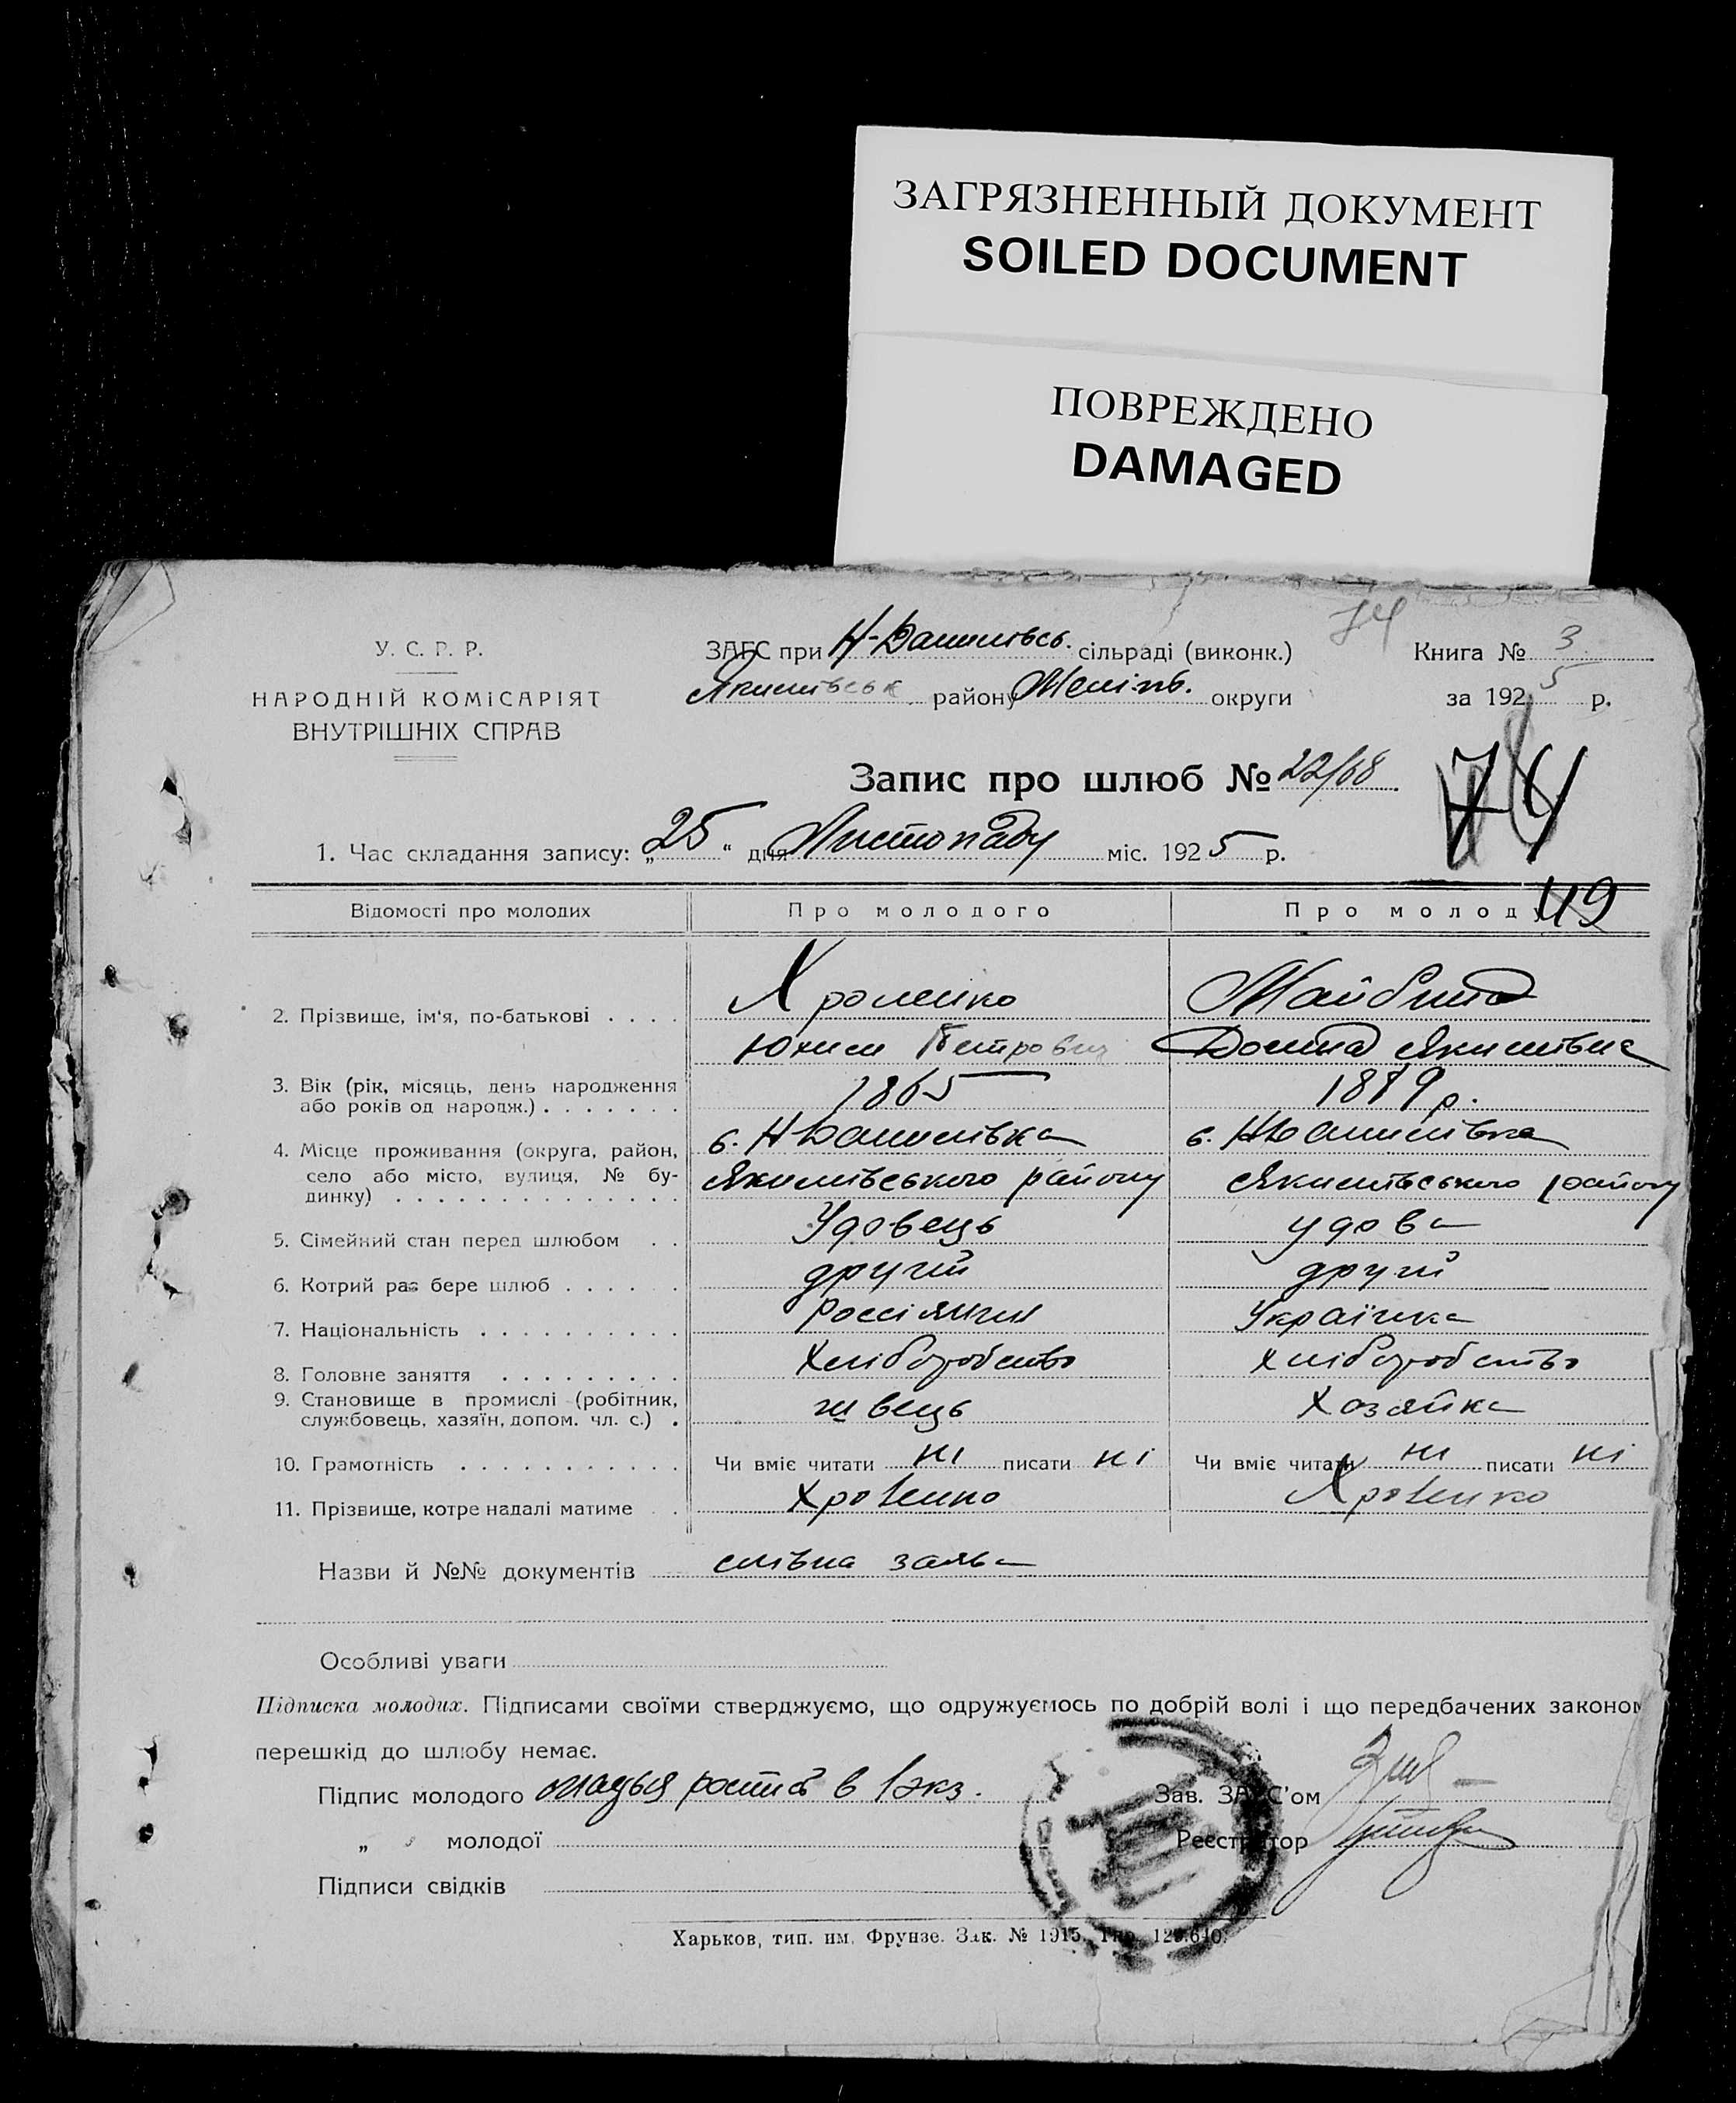 ЗАГРЯЗНЕННЫЙ ДОКУМЕНТ
SOILED DOCUMENT
ПОВРЕЖДЕНО
DAMAGED
74
У. С. Р. Р.
НАРОДНІЙ КОМІСАРІЯТ
ВНУТРІШНІХ СПРАВ
ЗАГС при Н-Данилівсь. сільраді (виконк.)
Якимівськ району Меліт. округи
Книга № 3
за 1925 р.
Запис про шлюб № 22/68
74
1. Час складання запису: „25“ дня Листопаду міс. 1925 р.
49
Відомості про молодих Про молодого Про молоду
2. Прізвище, ім'я, по-батькові . . . . Хроменко
Юхим Петрович Домна Якимівна
3. Вік (рік, місяць, день народження
або років од народж.) . . . . . . . 1865 1879 р.
4. Місце проживання (округа, район,
село або місто, вулиця, № бу-
динку) . . . . . . . . . . . . . .
с. НДанилівка с. НДанилівка
Якимівського району Якимівського району
5. Сімейний стан перед шлюбом . . Удовець удова
6. Котрий раз бере шлюб . . . . . . другий другий
7. Національність . . . . . . . . . . Россіянин Українка
8. Головне заняття . . . . . . . . . Хліборобство хліборобство
9. Становище в промислі (робітник,
службовець, хазяїн, допом. чл. с.) . швець Хозяйка
10. Грамотність . . . . . . . . . . . Чи вміє читати ні писати ні Чи вміє читати ні писати ні
11. Прізвище, котре надалі матиме . . Хроменко Хроменко
Назви й №№ документів слівна заява
Особливі уваги
Підписка молодих. Підписами своїми стверджуємо, що одружуємось по добрій волі і що передбачених законом
перешкід до шлюбу немає.
Підпис молодого в 1 экз.
„ молодої
Підписи свідків
Зав. ЗАГС'ом
Реєстратор
Харьков, тип. им. Фрунзе. Зак. № 1915. Тир. 129.640.